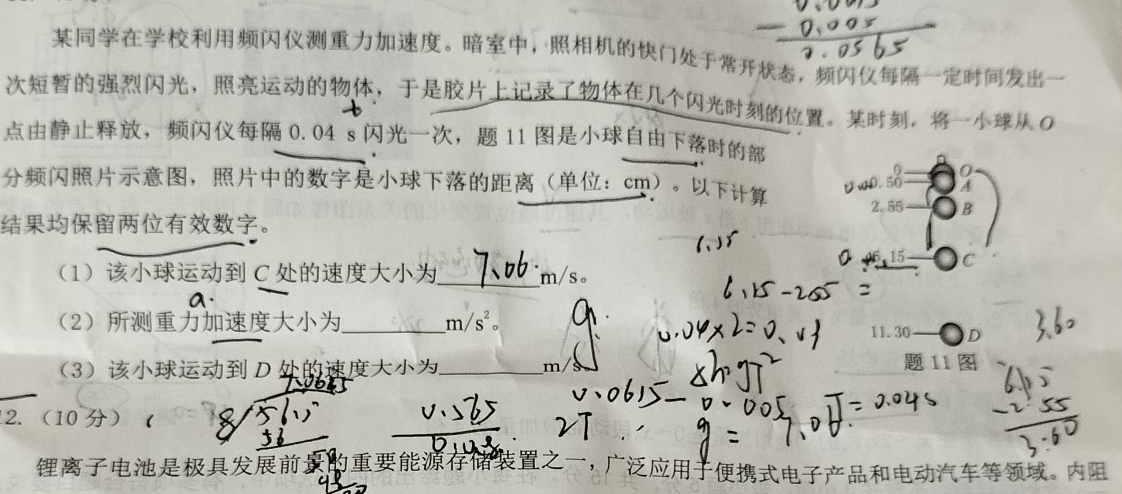 0.005
0.0565
某同学在学校利用频闪仪测重力加速度。暗室中，照相机的快门处于常开状态，频闪仪每隔一定时间发出一
次短暂的强烈闪光，照亮运动的物体，于是胶片上记录了物体在几个闪光时刻的位置。某时刻，将一小球从O
点由静止释放，频闪仪每隔0.04 s闪光一次，题11图是小球自由下落时的部
分频闪照片示意图，照片中的数字是小球下落的距离（单位：cm）。以下计算
结果均保留两位有效数字。
0 O
0.50 A
2.55 B
6.15 C
11.30 D
题11图
（1）该小球运动到C处的速度大小为 7.06 m/s。
6.15
a.
6.15-255=
（2）所测重力加速度大小为 m/s²。
g.
0.04×2=0.08
3.60
（3）该小球运动到D处的速度大小为 m/s
△h=gT²
0.0615-0.005
T=0.04s
6.15
-2.55
3.60
7.0625
8/56.5
56
0.565
2T
g=
7.06
12.（10分）
锂离子电池是极具发展前景的重要能源存储装置之一，广泛应用于便携式电子产品和电动汽车等领域。内阻